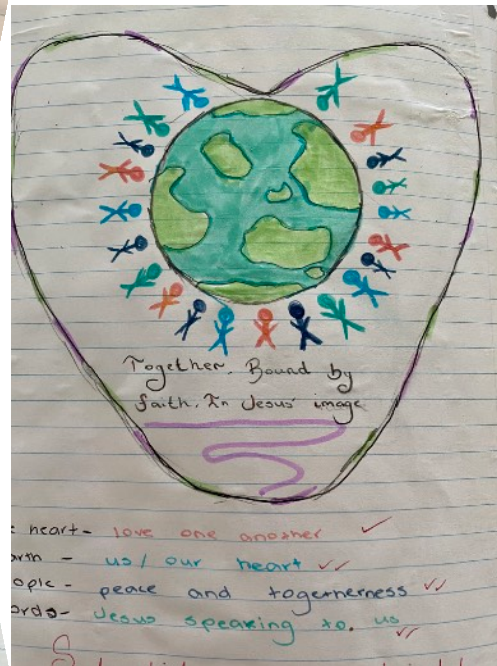 Together. Bound by
faith. In Jesus' image
heart- love one another
rth - us/ our heart
ople - peace and togetherness
ords- Jesus speaking to. us